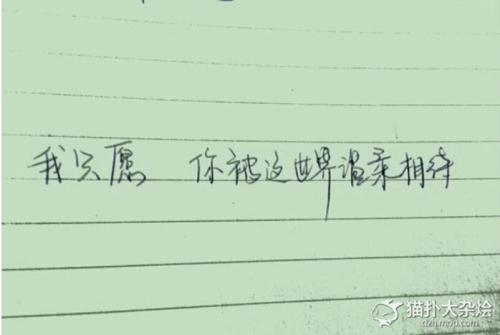 我只愿 你被这世界温柔相待
猫扑大杂烩
dzh.mop.com